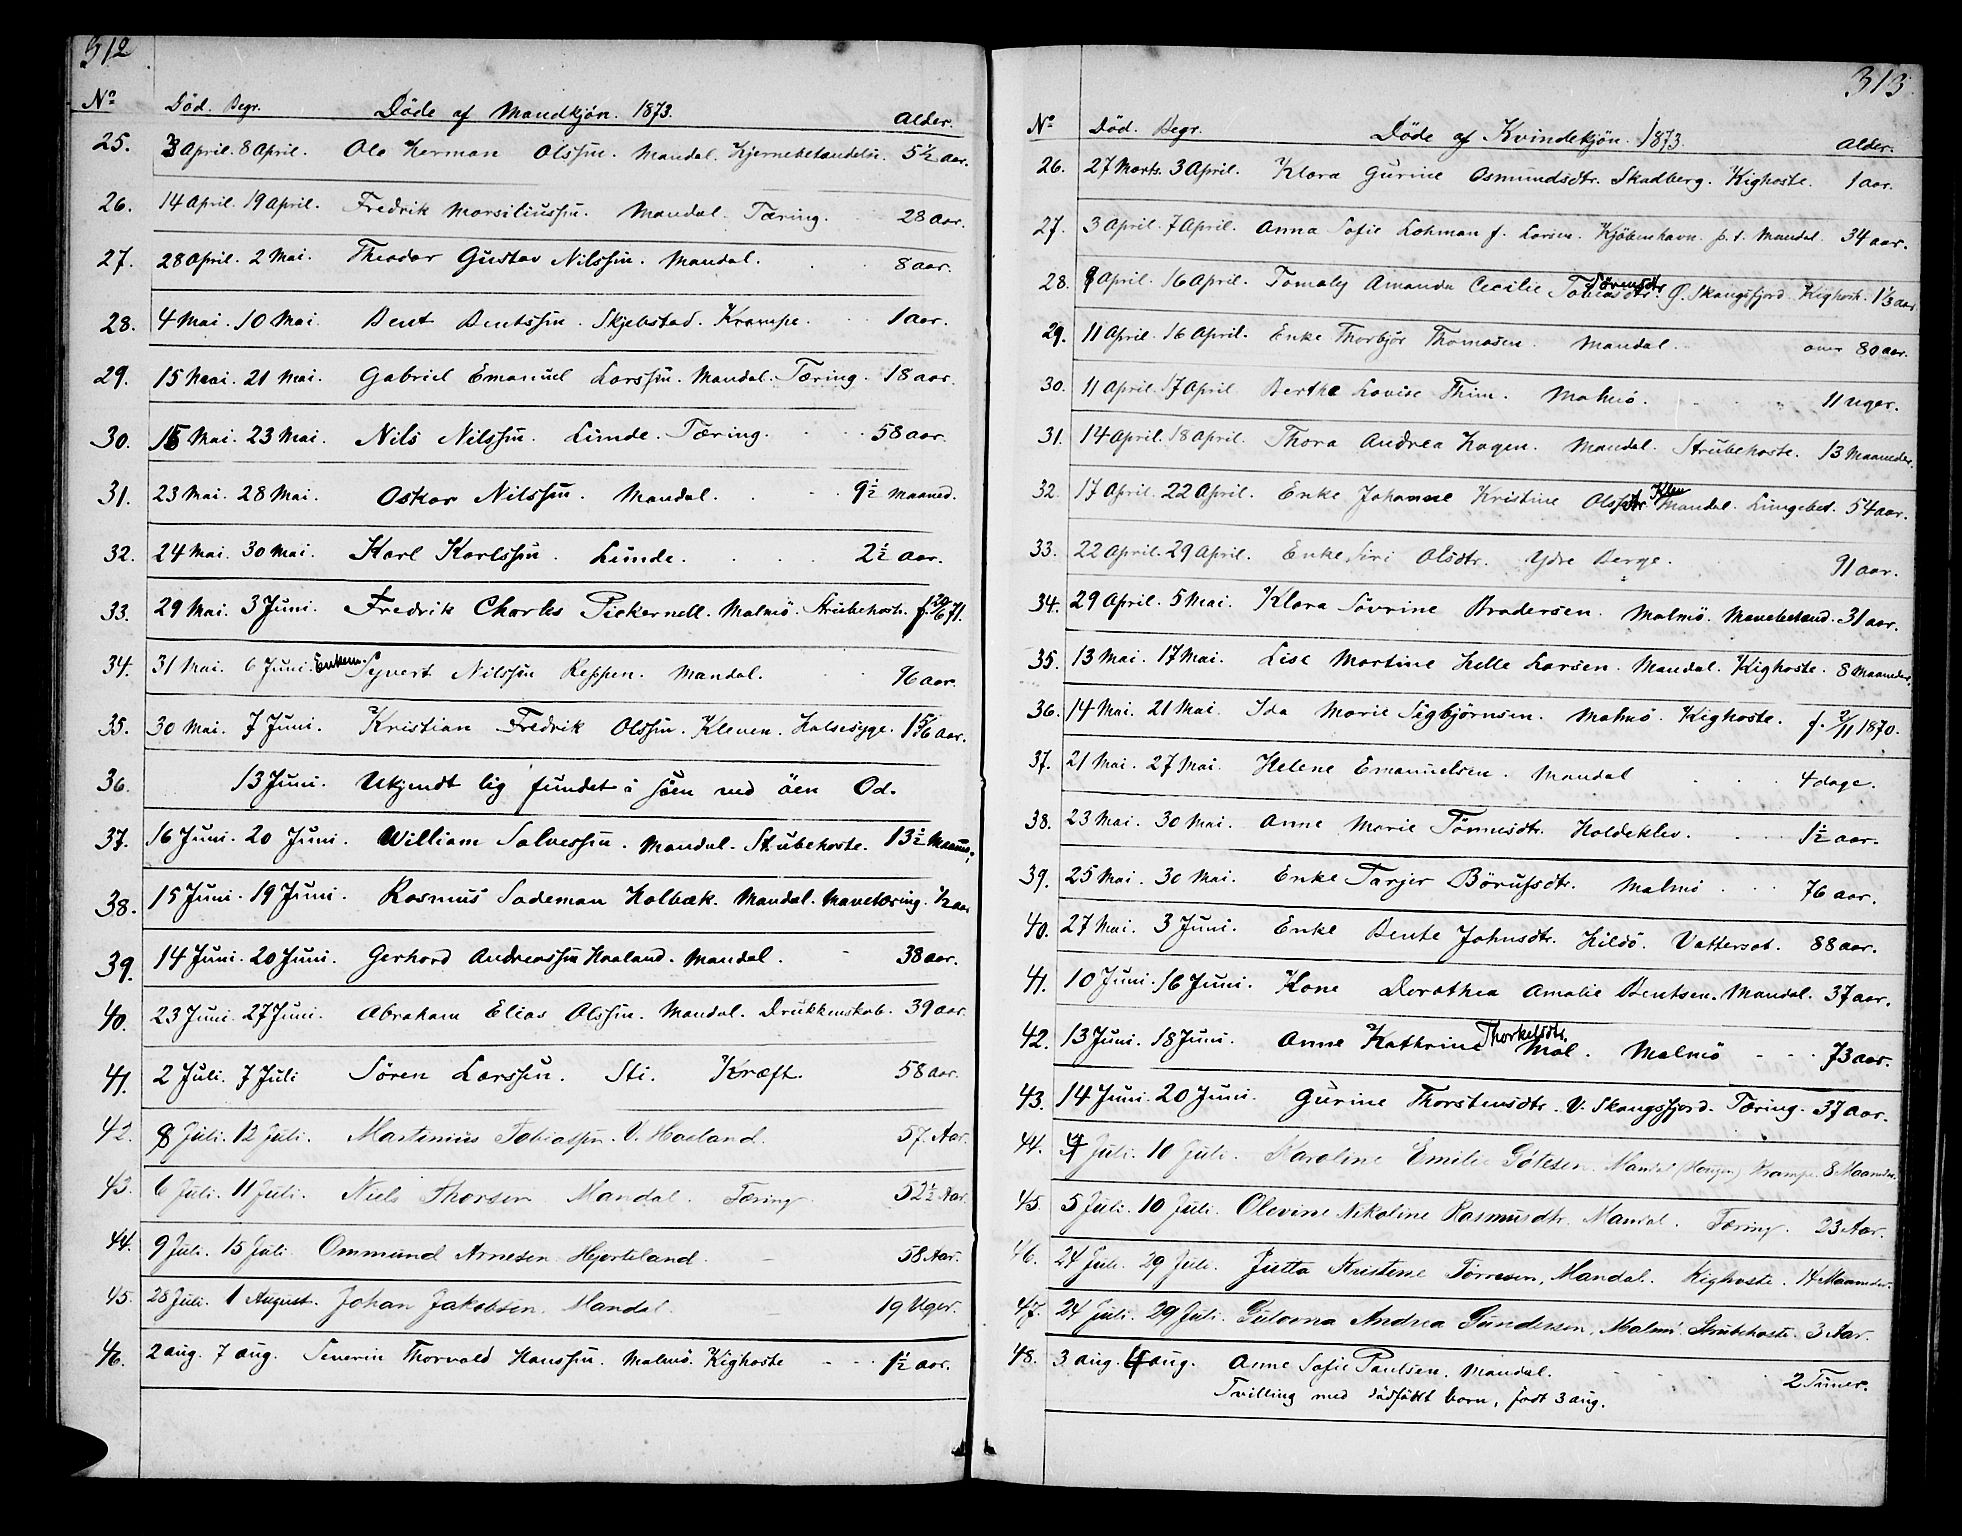 312
No Död. Begr. Döde af Mandkjön. 1873. Alder.
25. 3 April. 8 April. Ole Herman Olssön. Mandal. Hjernebetændelse. 5½ aar.
26. 14 April. 19 April. Fredrik Marsiliussön. Mandal. Tæring. 28 aar.
27. 28 April. 2 Mai. Theodor Gustav Nilssön. Mandal. 8 aar.
28. 4 Mai. 10 Mai. Bent Bentssön. Skjebstad. Krampe. 1 aar.
29. 15 Mai. 21 Mai. Gabriel Emanuel Larssön. Mandal. Tæring. 18 aar.
30. 15 Mai. 23 Mai. Nils Nilssön. Lunde. Tæring. 58 aar.
31. 23 Mai. 28 Mai. Oskar Nilssön. Mandal. 9½ maaned.
32. 24 Mai. 30 Mai. Karl Karlssön. Lunde. 2½ aar.
33. 29 Mai. 3 Juni. Fredrik Charles Pickernell. Malmö. Strubehoste. f. 20/6 71.
34. 31 Mai. 6 Juni. Enkem. Syvert Nilssön Reppen. Mandal. 96 aar.
35. 30 Mai. 7 Juni. Kristian Fredrik Olssön. Kleven. Halsesyge. 1 5/6 aar.
36. 13 Juni. Ukjendt lig fundet i söen ved öen Od.
37. 16 Juni. 20 Juni. William Salvessön. Mandal. Strubehoste. 13½ Maaned.
38. 15 Juni. 19 Juni. Rasmus Sademan Holbæk. Mandal. Mavetæring. ½ aar
39. 14 Juni. 20 Juni. Gerhard Andreassön Haaland. Mandal. 38 aar.
40. 23 Juni. 27 Juni. Abraham Elias Olssön. Mandal. Drukkenskab. 39 aar.
41. 2 Juli. 7 Juli Sören Larssön. Sti. Kræft. 58 aar.
42. 8 Juli. 12 Juli. Martinius Tobiassön. V. Haaland. 57 Aar.
43. 6 Juli. 11 Juli. Niels Thorsen Mandal. Tæring 52½ Aar.
44. 9 Juli. 15 Juli. Ommund Arnesen Hjorteland. 58 Aar.
45. 28 Juli. 1 August. Johan Jakobsen. Mandal. 19 Uger.
46. 2 aug. 7 aug. Severin Thorvald Hanssön. Malmö. Kighoste 1½ aar.
313.
No Död. Begr. Döde af Kvindekjön. 1873. Alder.
26. 27 Marts. 3 April. Klara Gurine Osmundsdtr. Skadberg. Kighoste. 1 aar.
27. 3 April. 7 April. Anna Sofie Lohman f. Larsen. Kjöbenhavn. p. t. Mandal. 34 aar.
28. 9 April. 16 April. Tomaly Amanda Cecilie Tobiasdtr. Sörensdtr. Ö. Skangsfjord. Kighost. 1⅓ aar
29. 11 April. 16 April. Enke Thorbjör Thomasen. Mandal. over 80 aar.
30. 11 April. 17 April. Berthe Lovise Thim. Malmö. 11 uger.
31. 14 April. 18 April. Thora Andrea Hagen. Mandal. Strubehoste. 13 Maaneder.
32. 17 April. 22 April. Enke Johanne Kristine Olsdtr. Mandal. Lungebet. 54 aar.
33. 22 April. 29 April. Enke Siri Olsdtr. Ydre Berge. 91 aar.
34. 29 April. 5 Mai. Klara Sövrine Brodersen. Malmö. Mavebetænd. 31 aar.
35. 13 Mai. 17 Mai. Lise Martine Helle Larsen. Mandal. Kighoste. 8 Maaneder.
36. 14 Mai. 21 Mai. Ida Marie Sigbjörnsen. Malmö. Kighoste. f. 2/11 1870.
37. 21 Mai. 27 Mai. Helene Emanuelsen. Mandal 4 dage.
38. 23 Mai. 30 Mai. Anne Marie Tönnesdtr. Holdeklev. 1½ aar.
39. 25 Mai. 30 Mai. Enke Tarjer Börufsdtr. Malmö 76 aar.
40. 27 Mai. 3 Juni. Enke Bente Johnsdtr. Hildö. Vattersot. 88 aar.
41. 10 Juni. 16 Juni. Kone Dorothea Amalie Bentsen. Mandal. 37 aar.
42. 13 Juni. 18 Juni. Anne Kathrine Thorkelsdtr. Mal. Malmö 73 aar.
43. 14 Juni. 20 Juni. Gurine Thorstensdtr. V. Skangsfjord. Tæring. 37 aar.
44. 4 Juli. 10 Juli. Karoline Emilie Götesen. Mandal Krampe. 8 Maaneder
45. 5 Juli. 10 Juli. Olevine Nikoline Rasmusdtr. Mandal. Tæring. 23 Aar.
46. 24 Juli. 29 Juli. Jutta Kristine Torresen, Mandal. Kighoste. 14 Maaneder.
47. 24 Juli. 29 Juli. Gulovna Andrea Gundersen, Malmö Strubehoste. 3 Aar.
48. 3 aug. 4 aug. Anne Sofie Paulsen. Mandal. 2 Timer.
Tvilling med dödfödt barn, födt 3 aug.